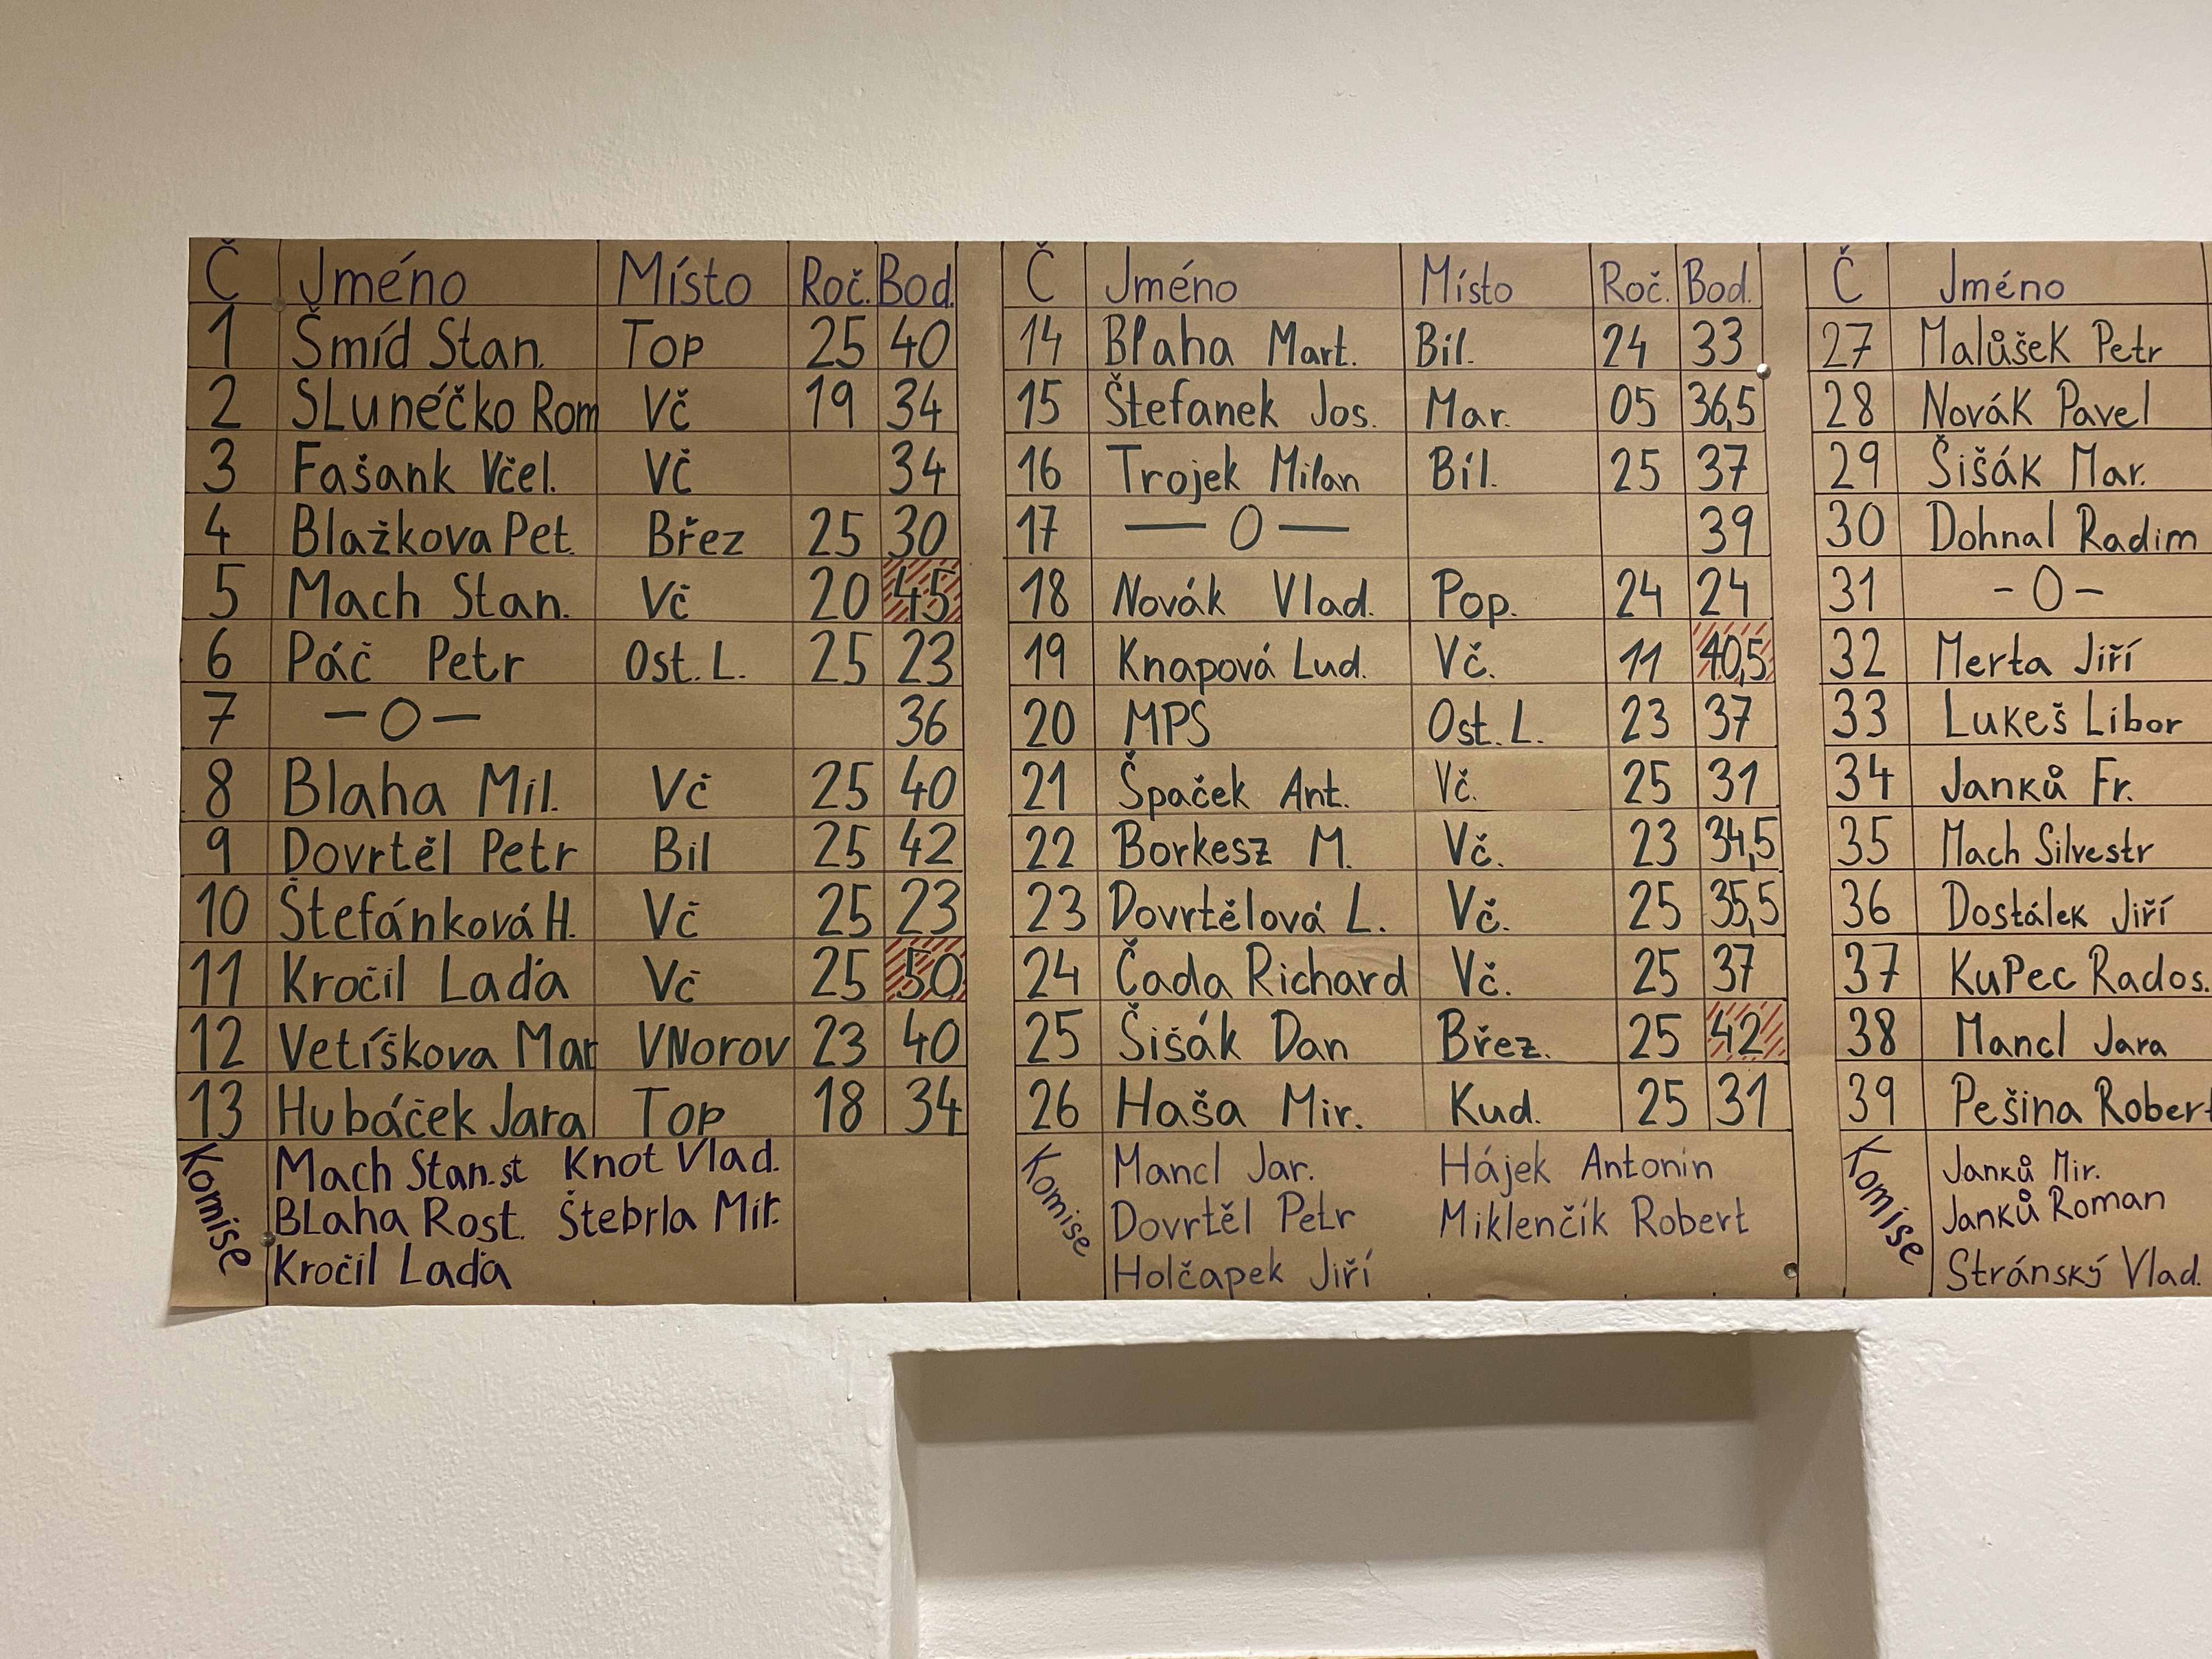 Č Jméno Místo Roč. Bod.
1 Šmíd Stan. Top 25 40
2 SLunéčko Rom Vč 19 34
3 Fašank Včel. Vč 34
4 Blažkova Pet. Břez 25 30
5 Mach Stan. Vč 20 45
6 Páč Petr Ost. L. 25 23
7 —O— 36
8 Blaha Mil. Vč 25 40
9 Dovrtěl Petr Bil 25 42
10 Štefánková H. Vč 25 23
11 Kročil Laďa Vč 25 50
12 Vetíškova Mar VNorov 23 40
13 Hubáček Jara Top 18 34
Komise
Mach Stan. st Knot Vlad.
BLaha Rost. Štebrla Mir.
Kročil Laďa
Č Jméno Místo Roč. Bod.
14 Blaha Mart. Bil. 24 33
15 Štefanek Jos. Mar. 05 36,5
16 Trojek Milan Bíl. 25 37
17 — O — 39
18 Novák Vlad. Pop. 24 24
19 Knapová Lud. Vč. 11 40,5
20 MPS Ost. L. 23 37
21 Špaček Ant. Vč. 25 31
22 Borkesz M. Vč. 23 34,5
23 Dovrtělová L. Vč. 25 35,5
24 Čada Richard Vč. 25 37
25 Šišák Dan Břez. 25 42
26 Haša Mir. Kud. 25 31
Komise
Mancl Jar. Hájek Antonín
Dovrtěl Petr Miklenčík Robert
Holčapek Jiří
Č Jméno
27 Malůšek Petr
28 Novák Pavel
29 Šišák Mar.
30 Dohnal Radim
31 -O-
32 Merta Jiří
33 Lukeš Libor
34 Janků Fr.
35 Mach Silvestr
36 Dostálek Jiří
37 KuPec Rados.
38 Mancl Jara
39 Pešina Robert
Komise
Janků Mir.
Janků Roman
Stránský Vlad.